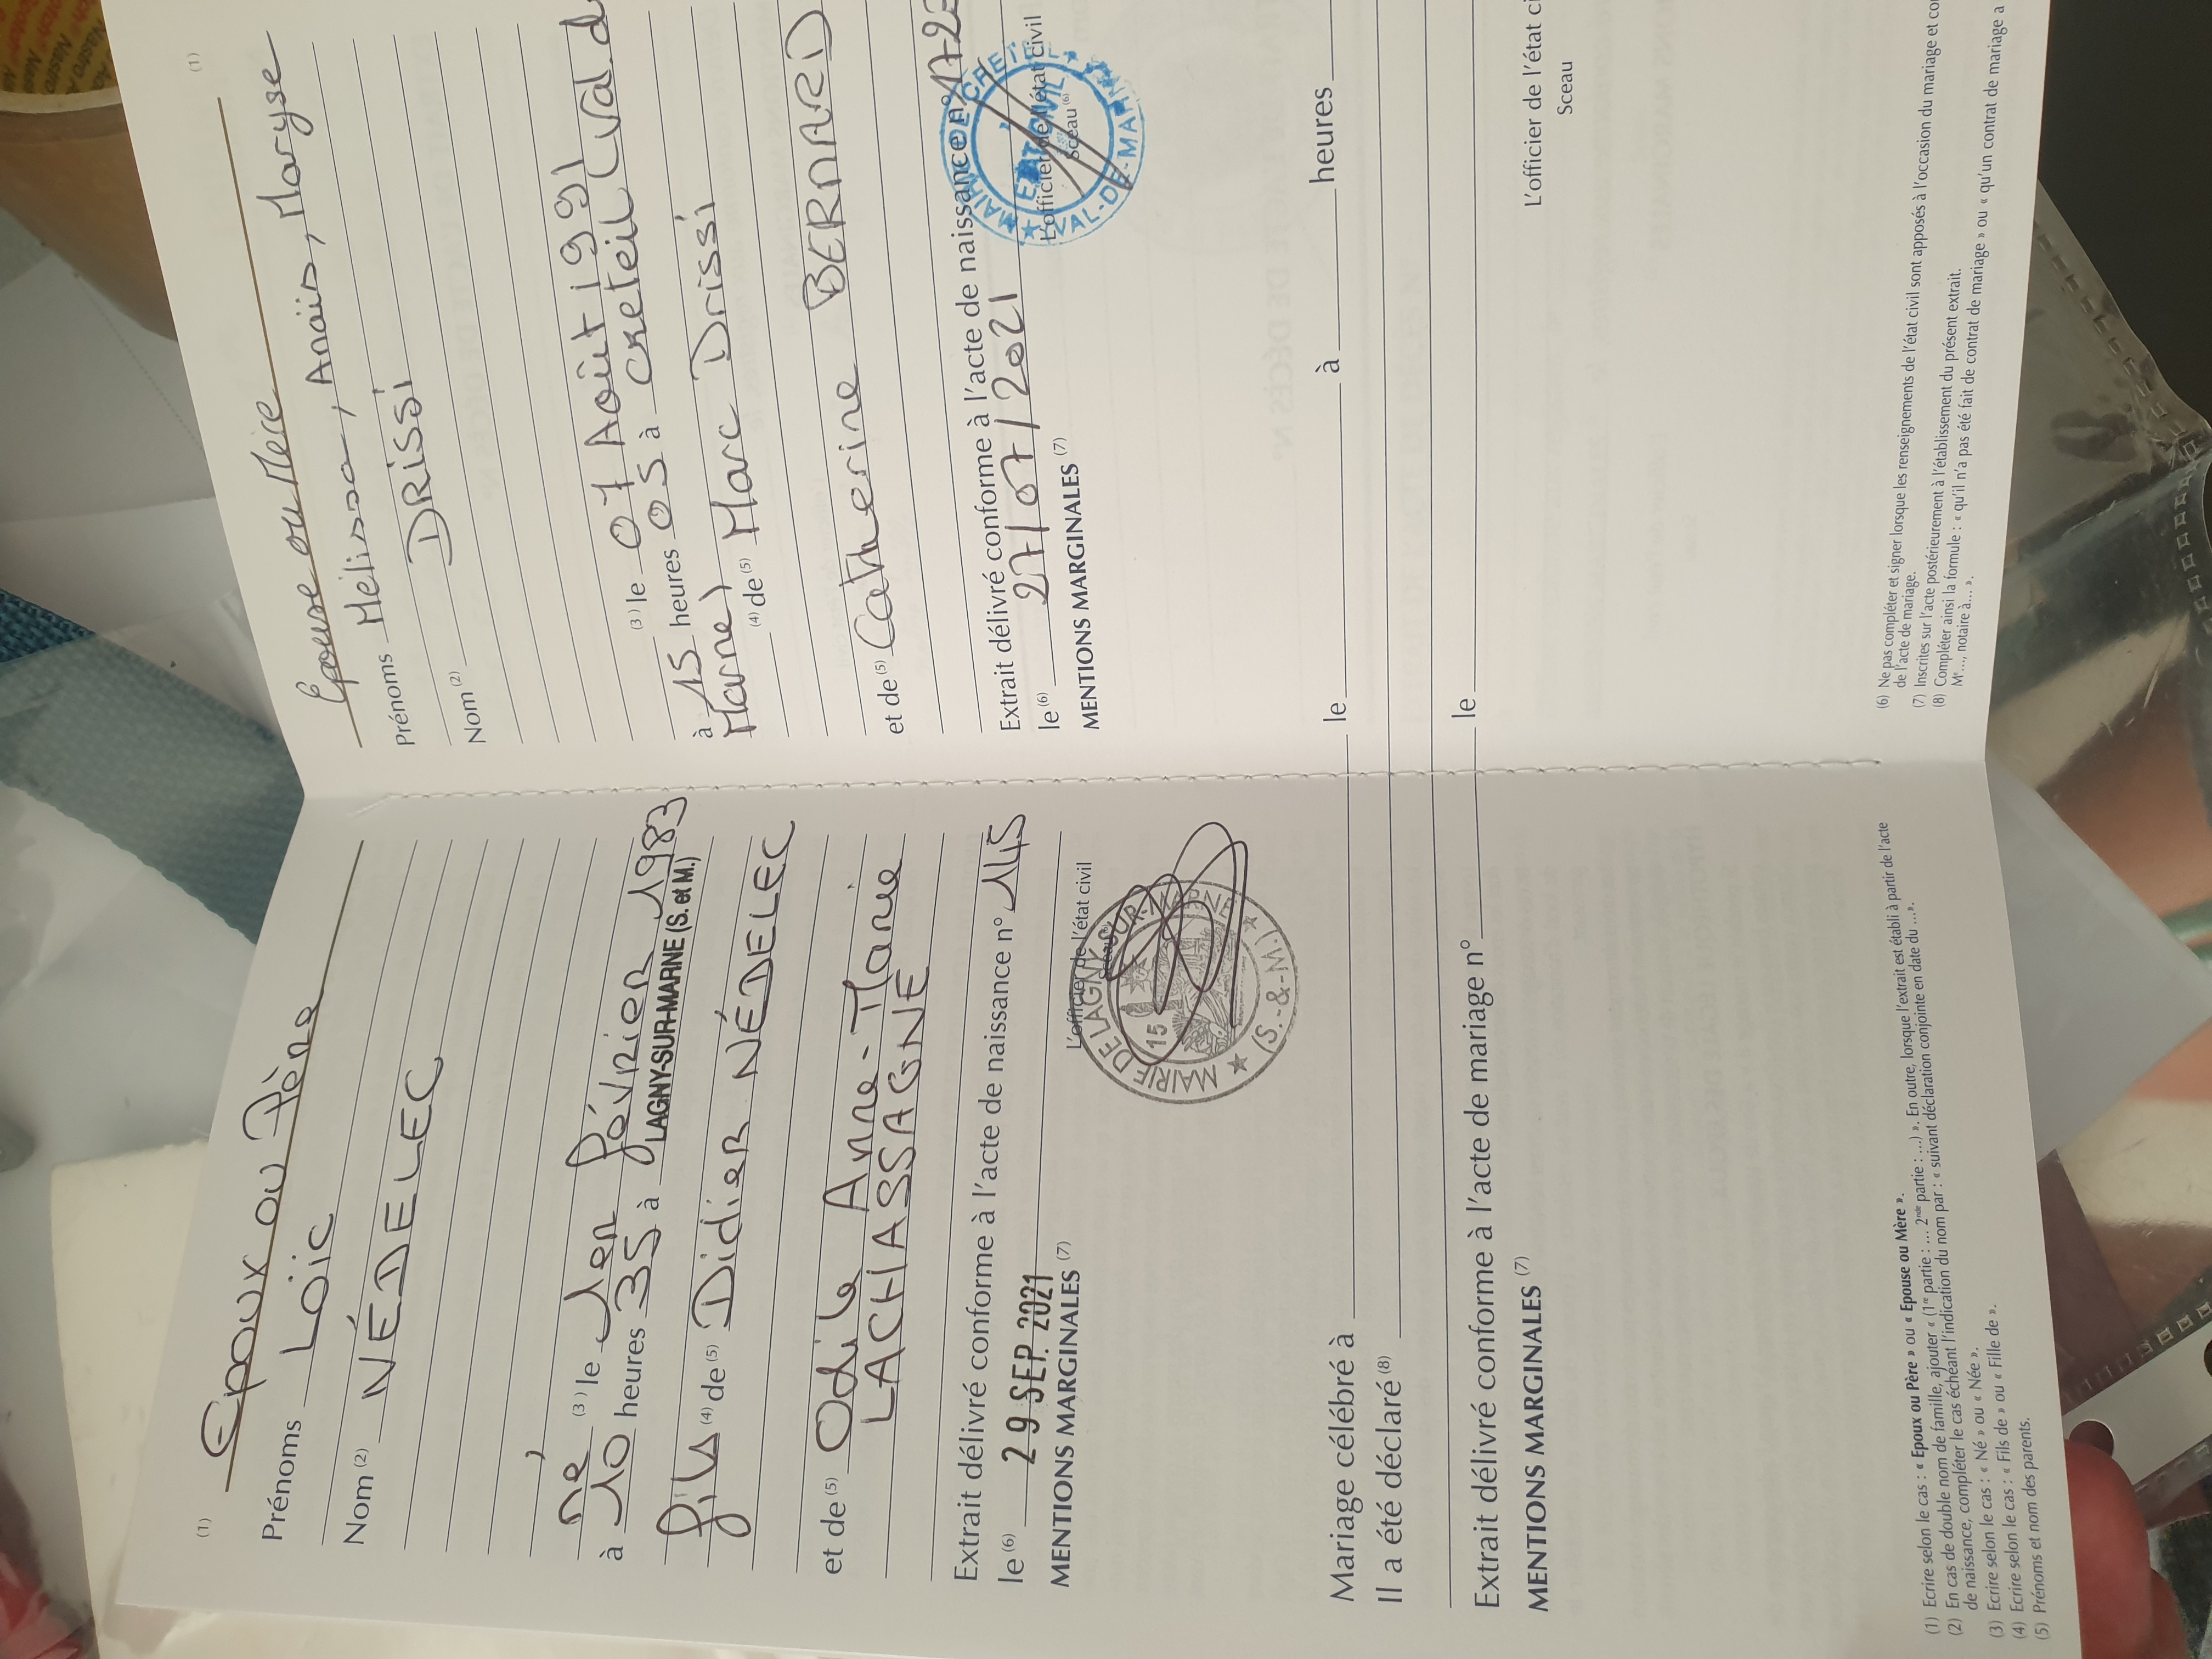 (1)
Epoux ou Père
Prénoms Loïc
Nom (2) NÉDELEC
né (3) le 1er février 1983
à 10 heures 35 à LAGNY-SUR-MARNE (S. et M.)
fils (4) de (5) Didier NÉDELEC
et de (5) Odile Anne-Marie
LACHASSAGNE
Extrait délivré conforme à l'acte de naissance n° 145
le (6) 29 SEP. 2021
L'officier de l'état civil
MAIRIE DE LAGNY-SUR-MARNE
15
(S.-&-M.)
MENTIONS MARGINALES (7)
(1)
Epouse ou Mère
Prénoms Mélissa, Anaïs, Maryse
Nom (2) DRissi
(3) le 07 Août 1991
à 15 heures 05 à Creteil (Val de
Marne)
(4) de (5) Marc Drissi
et de (5) Catherine BERNARD
Extrait délivré conforme à l'acte de naissance n°
le (6) 27/07/2021
L'officier de l'état civil
Sceau (6)
MAIRIE DE CRETEIL
ETAT CIVIL
VAL-DE-MARNE
MENTIONS MARGINALES (7)
Mariage célébré à le à heures
Il a été déclaré (8)
Extrait délivré conforme à l'acte de mariage n° le
MENTIONS MARGINALES (7)
L'officier de l'état ci
Sceau
(1) Ecrire selon le cas : « Epoux ou Père » ou « Epouse ou Mère ».
(2) En cas de double nom de famille, ajouter « (1re partie : ... 2nde partie : ...) ». En outre, lorsque l'extrait est établi à partir de l'acte
de naissance, compléter le cas échéant l'indication du nom par : « suivant déclaration conjointe en date du ...».
(3) Ecrire selon le cas : « Né » ou « Née ».
(4) Ecrire selon le cas : « Fils de » ou « Fille de ».
(5) Prénoms et nom des parents.
(6) Ne pas compléter et signer lorsque les renseignements de l'état civil sont apposés à l'occasion du mariage et co
de l'acte de mariage.
(7) Inscrites sur l'acte postérieurement à l'établissement du présent extrait.
(8) Compléter ainsi la formule : « qu'il n'a pas été fait de contrat de mariage » ou « qu'un contrat de mariage a
Me..., notaire à... ».